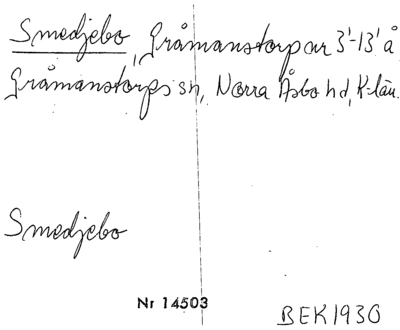 Smedjebo, Gråmanstorp nr 3¹-13¹ å
Gråmanstorps sn, Norra Åsbo hd, K-län.
Smedjebo
Nr 14503
BEK1930